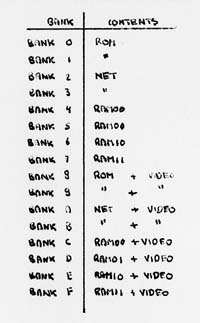 BANK CONTENTS
BANK 0 ROM
BANK 1 "
BANK 2 NET
BANK 3 "
BANK 4 RAM00
BANK 5 RAM00
BANK 6 RAM10
BANK 7 RAM11
BANK 8 ROM + VIDEO
BANK 9 " + "
BANK A NET + VIDEO
BANK B " + "
BANK C RAM00 + VIDEO
BANK D RAM01 + VIDEO
BANK E RAM10 + VIDEO
BANK F RAM11 + VIDEO